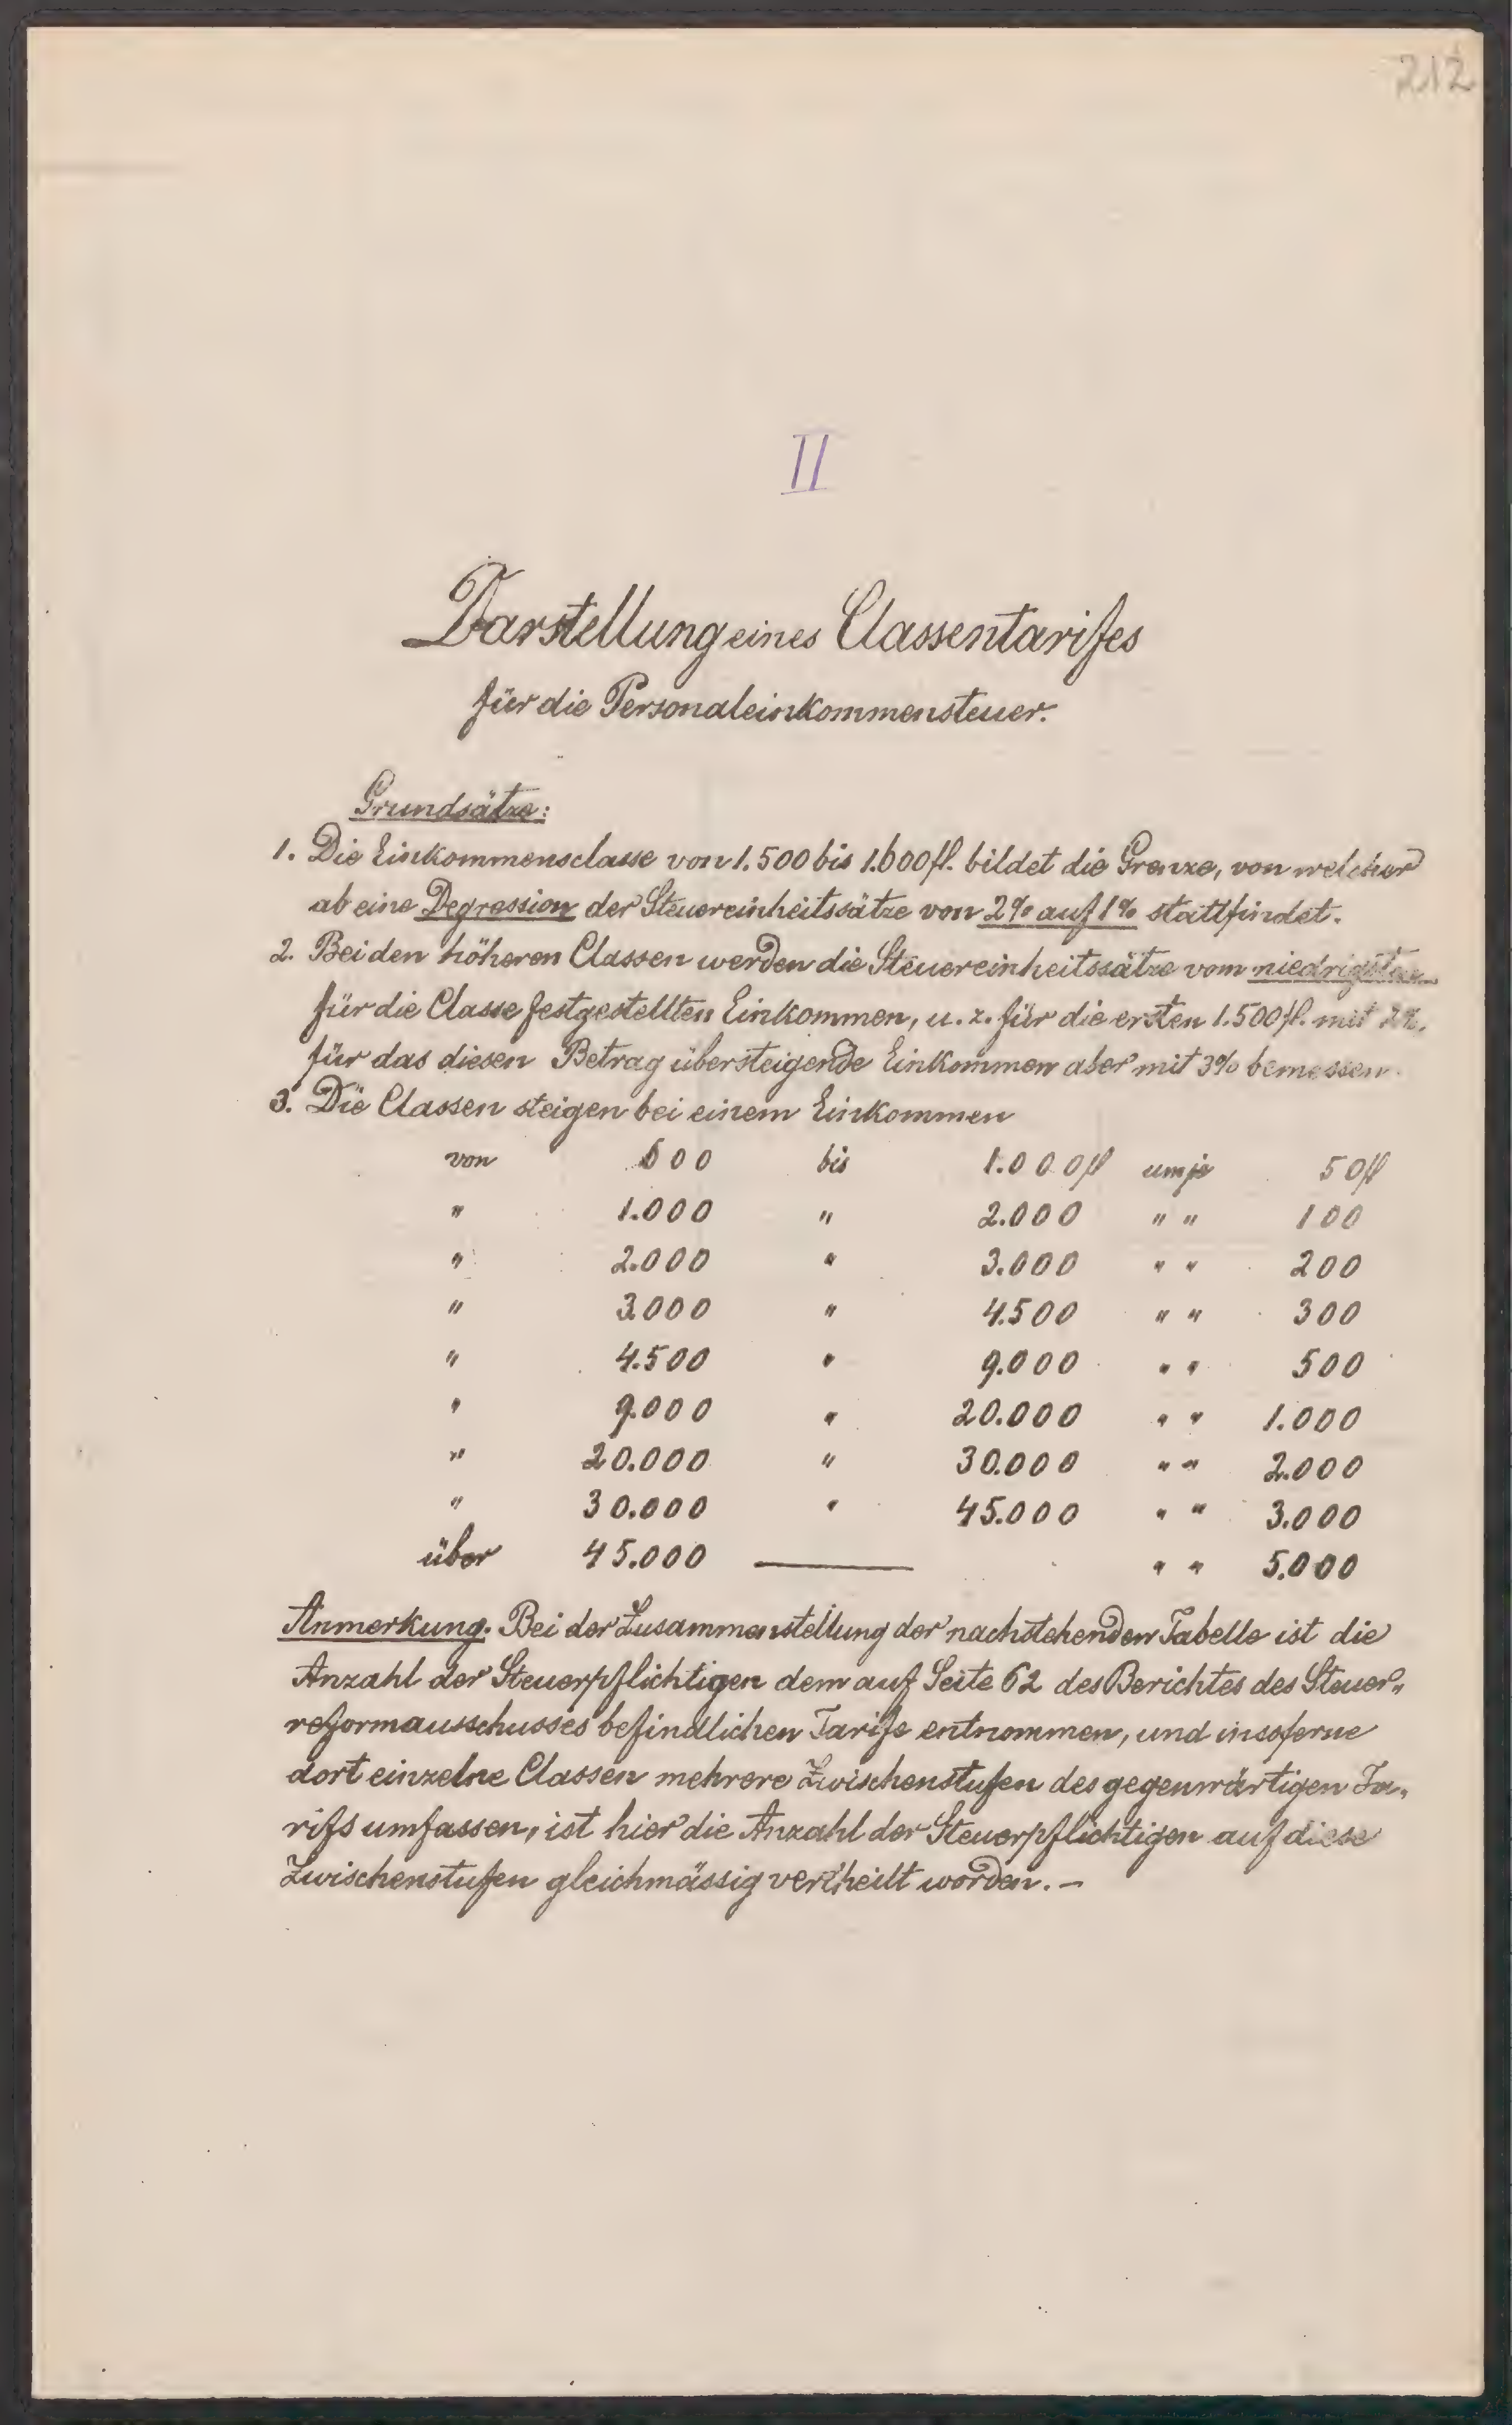 212
II
Darstellung eines Classentarifes
für die Personaleinkommensteuer.
Grundsätze:
1. Die Einkommensclasse von 1.500 bis 1.600 fl. bildet die Grenze, von welcher
ab eine Degression der Steuereinheitssätze von 2% auf 1% stattfindet.
2. Bei den höheren Classen werden die Steuereinheitssätze vom niedrigsten
für die Classe festgestellten Einkommen, u. z. für die ersten 1.500 fl. mit 2%,
für das diesen Betrag übersteigende Einkommen aber mit 3% bemessen.
3. Die Classen steigen bei einem Einkommen
von 600 bis 1.000 fl um je 50 fl
" 1.000 " 2.000 " " 100
" 2.000 " 3.000 " " 200
" 3.000 " 4.500 " " 300
" 4.500 " 9.000 " " 500
" 9.000 " 20.000 " " 1.000
" 20.000 " 30.000 " " 2.000
" 30.000 " 45.000 " " 3.000
über 45.000 — " " 5.000
Anmerkung. Bei der Zusammenstellung der nachstehenden Tabelle ist die
Anzahl der Steuerpflichtigen dem auf Seite 62 des Berichtes des Steuer„
reformausschusses befindlichen Tarife entnommen, und insoferne
dort einzelne Classen mehrere Zwischenstufen des gegenwärtigen Ta„
rifs umfassen, ist hier die Anzahl der Steuerpflichtigen auf diese
Zwischenstufen gleichmässig vertheilt worden. –